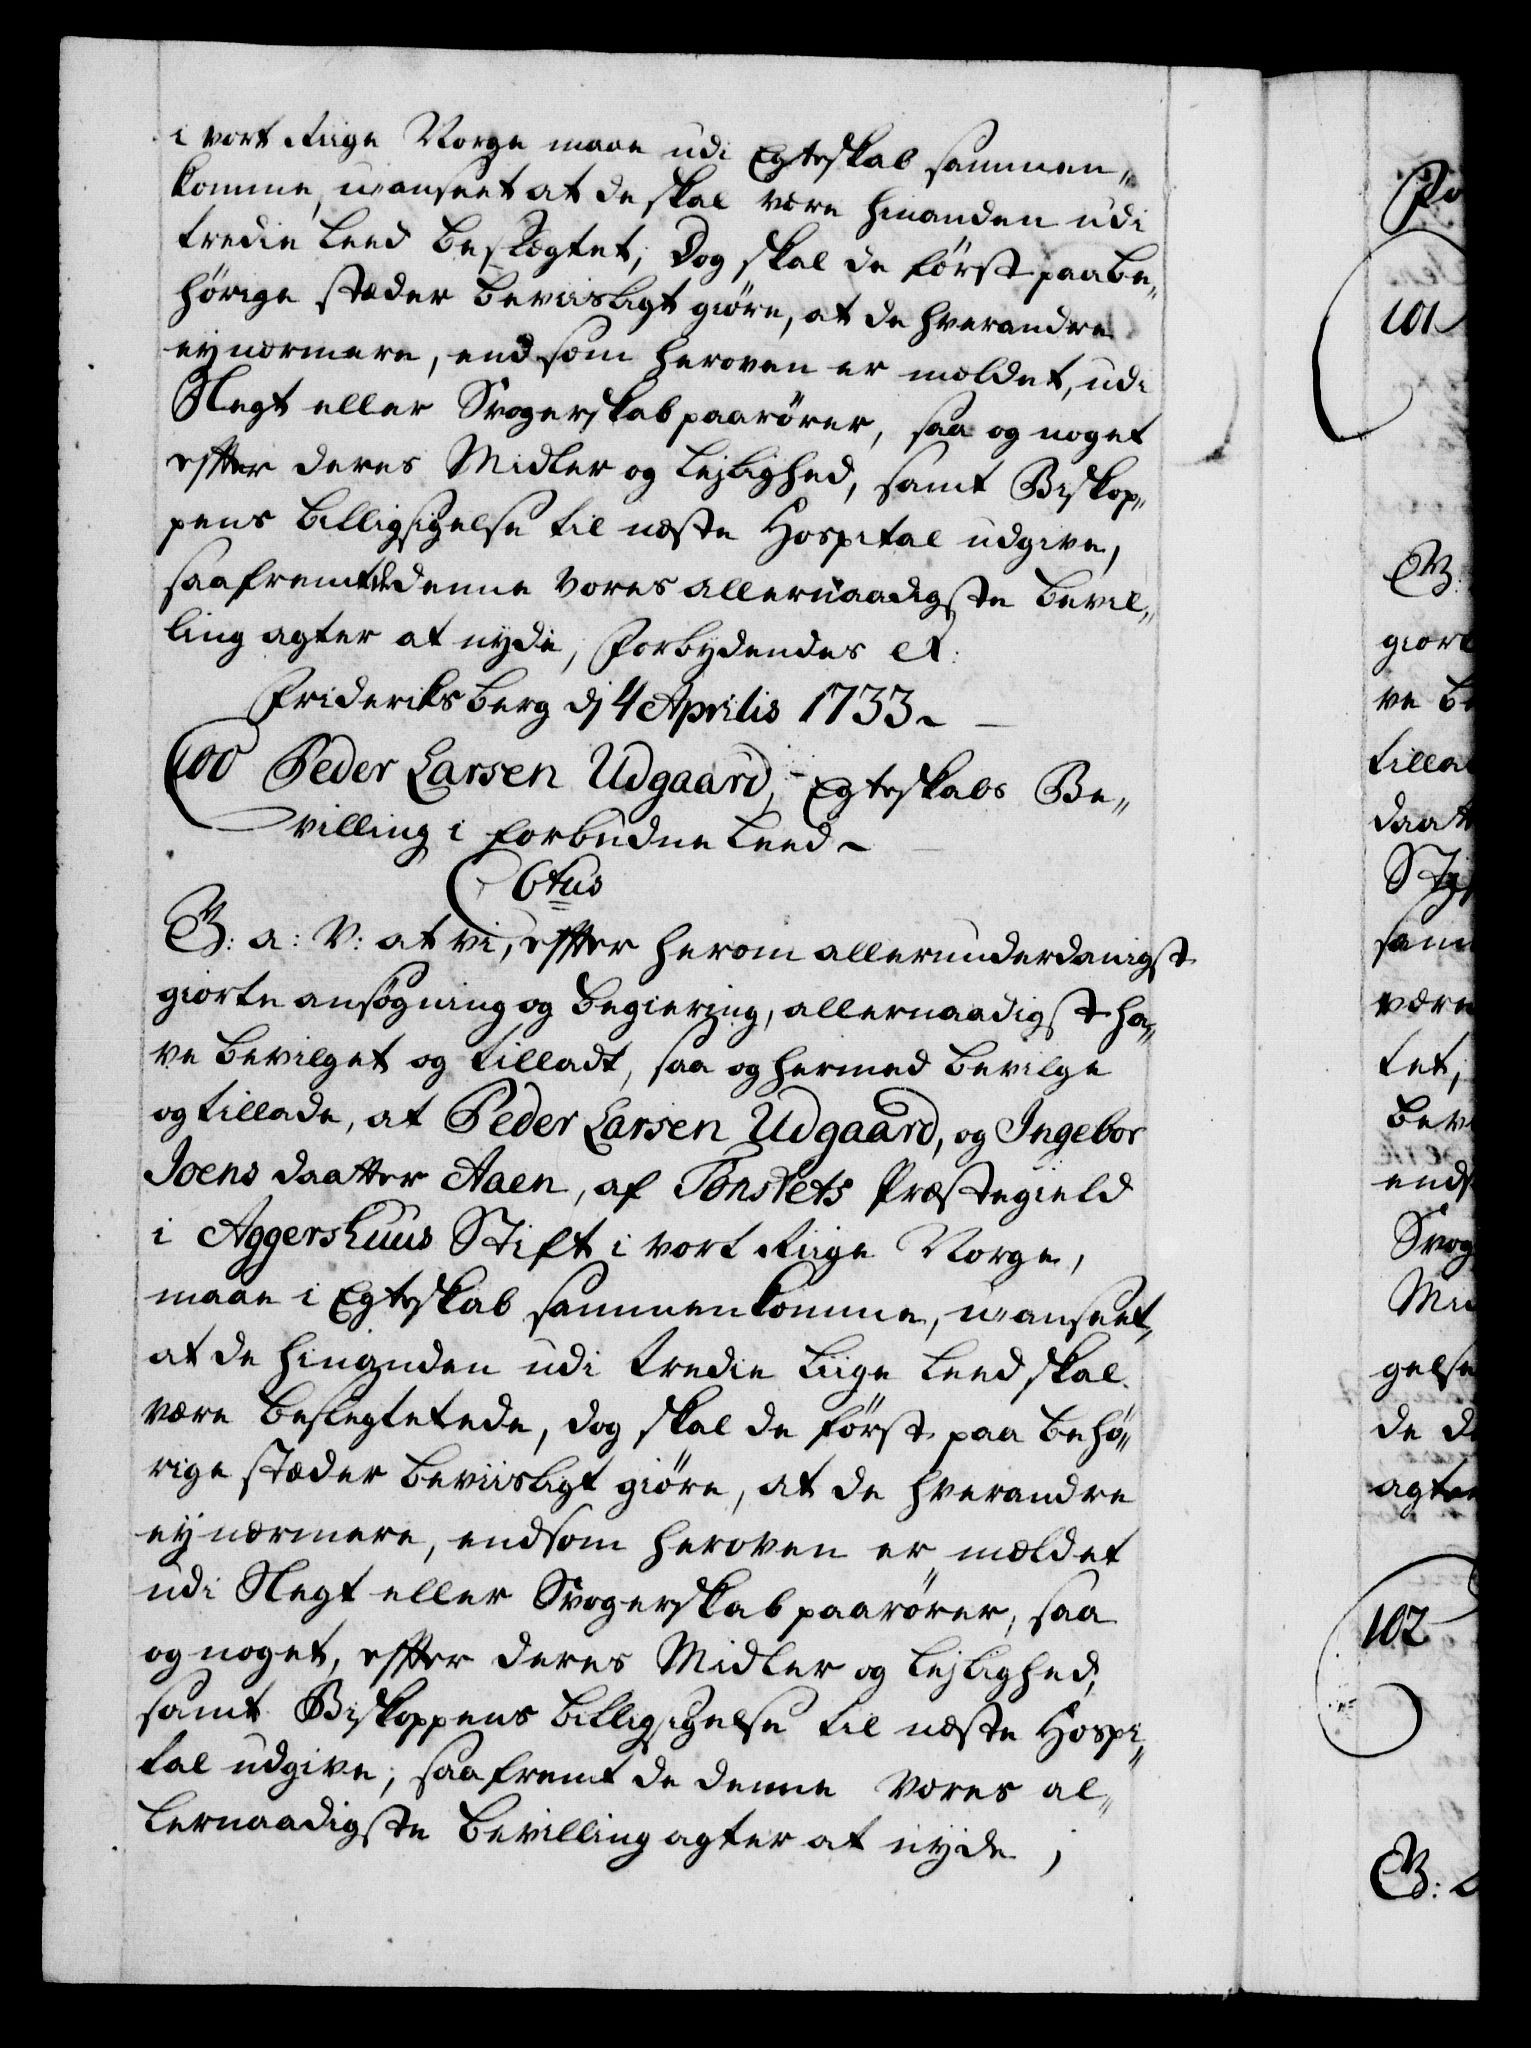 i vort Riige Norge maae udi Egteskab sammen„
komme, uanseet at de skal være hinanden udi
tredie Leed beslægtet, Dog skal de först paa be„
hørige stæder beviisligt giöre, at de hverandre
ey nærmere, end som heroven er meldet, udi
Slegt eller Svogerskab paarörer, saa og noget
effter deres Midler og Lejlighed, samt Biskop„
pens billigsigelse til næste Hospital udgive,
saafremt de denne Vores allernaadigste bevil„
ling agter at nyde, Forbydendes etc:
Frideriksberg dj 4 Aprilis 1733
100 Peder Larsen Udgaard, Egteskabs Be„
villing i forbudne Leed
C 6tus
G: a: V: at vi, effter herom allerunderdanigst
giorte ansögning og begiering, allernaadigst ha„
ve bevilget og tilladt, saa og hermed bevilge
og tillade, at Peder Larsen Udgaard, og Ingebor
Joens daatter Aaen, af Tönsets Præstegield
i Aggershuus Stift i vort Riige Norge,
maae i Egteskab sammenkomme, uanseet,
at de hinanden udi tredie liige Leed skal
være beslegtetede, dog skal de först paa behö„
rige stæder beviisligt giöre, at de hverandre
ey nærmere, end som heroven er meldet
udi Slegt eller Svogerskab paarörer, saa
og noget, effter deres Midler og Lejlighed,
samt Biskoppens billigsigelse til næste Hospi„
tal udgive, saafremt de denne Vores al„
lernaadigste bevilling agter at nyde,
101
giort
ve be
tilla
daatt
samm
være
tet,
bev
ends
Svog
Mid
gelse
de de
agter
102